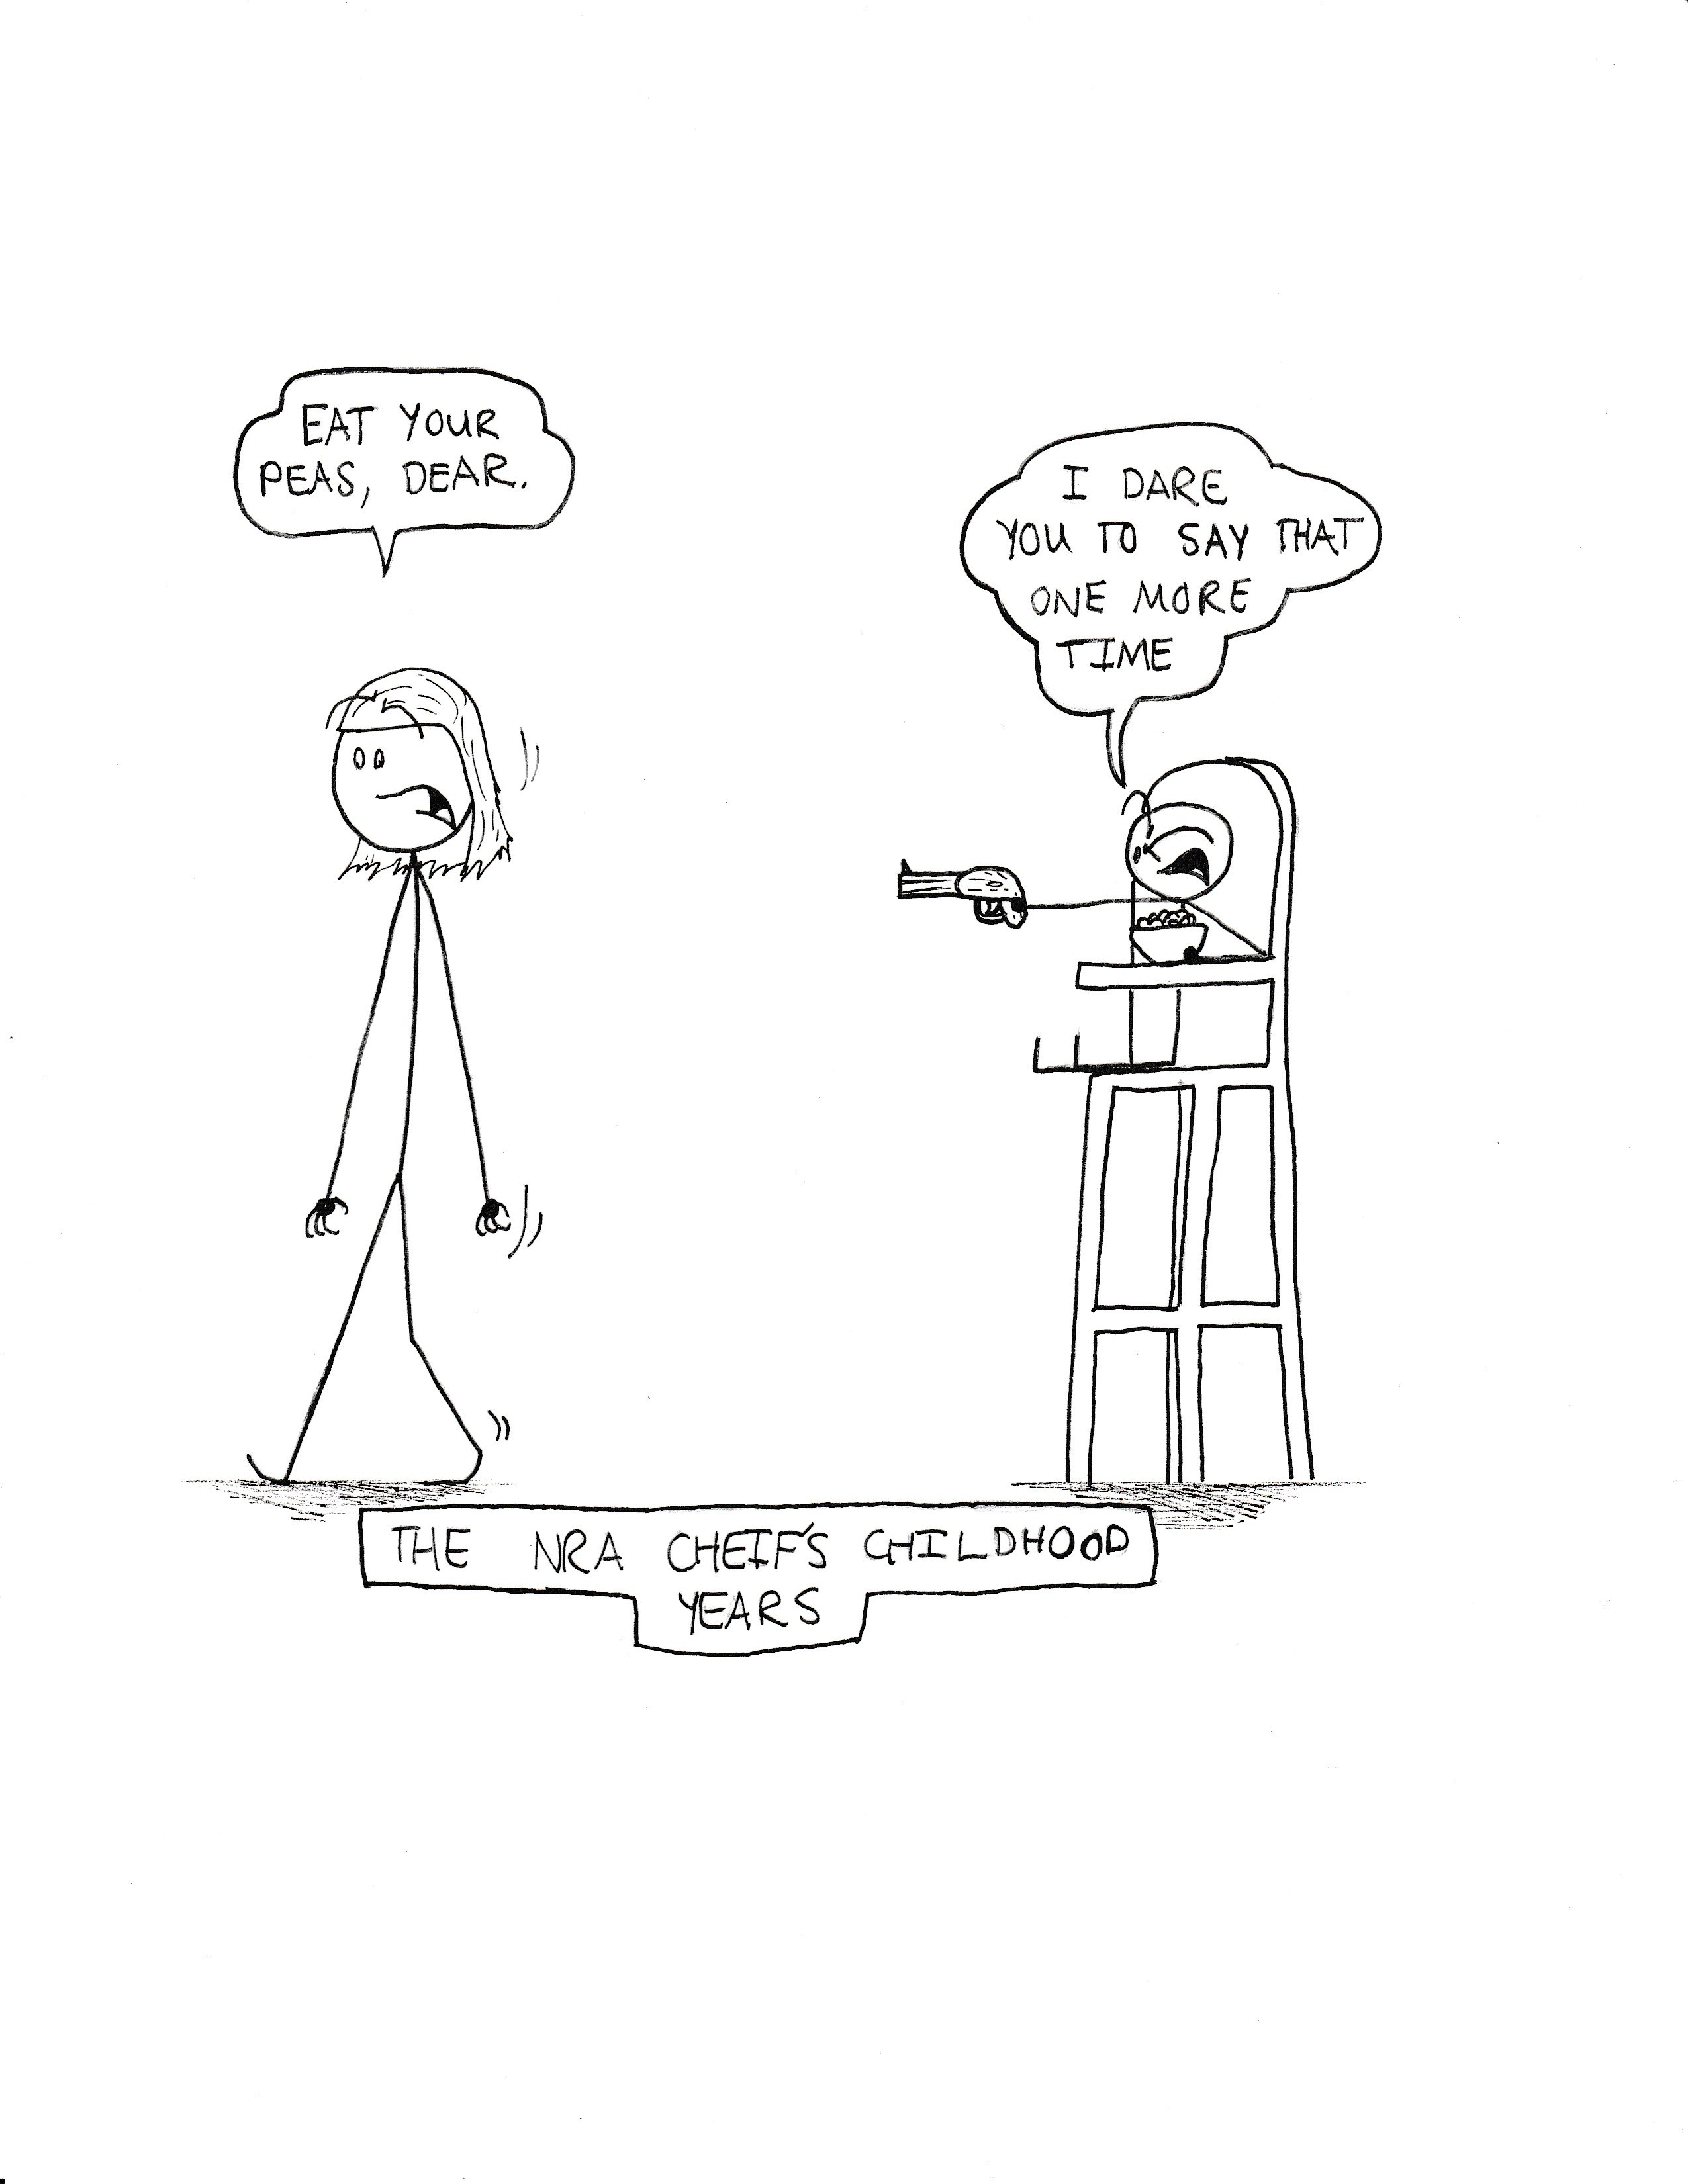 EAT YOUR
PEAS, DEAR.
I DARE
YOU TO SAY THAT
ONE MORE
TIME
THE NRA CHEIF'S CHILDHOOD
YEARS